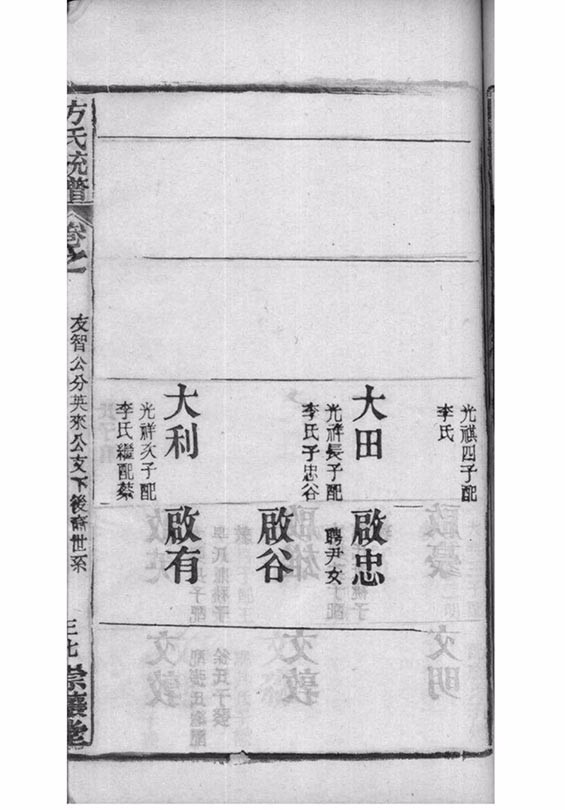 光祺四子配
李氏
大田
光祥長子配
李氏子忠谷
啟忠
聘尹女
啟谷
大利
光祥次子配
李氏繼配蔡
啟有
方氏統譜
卷之
友智公分英來公支下後裔世系
三七
崇讓堂